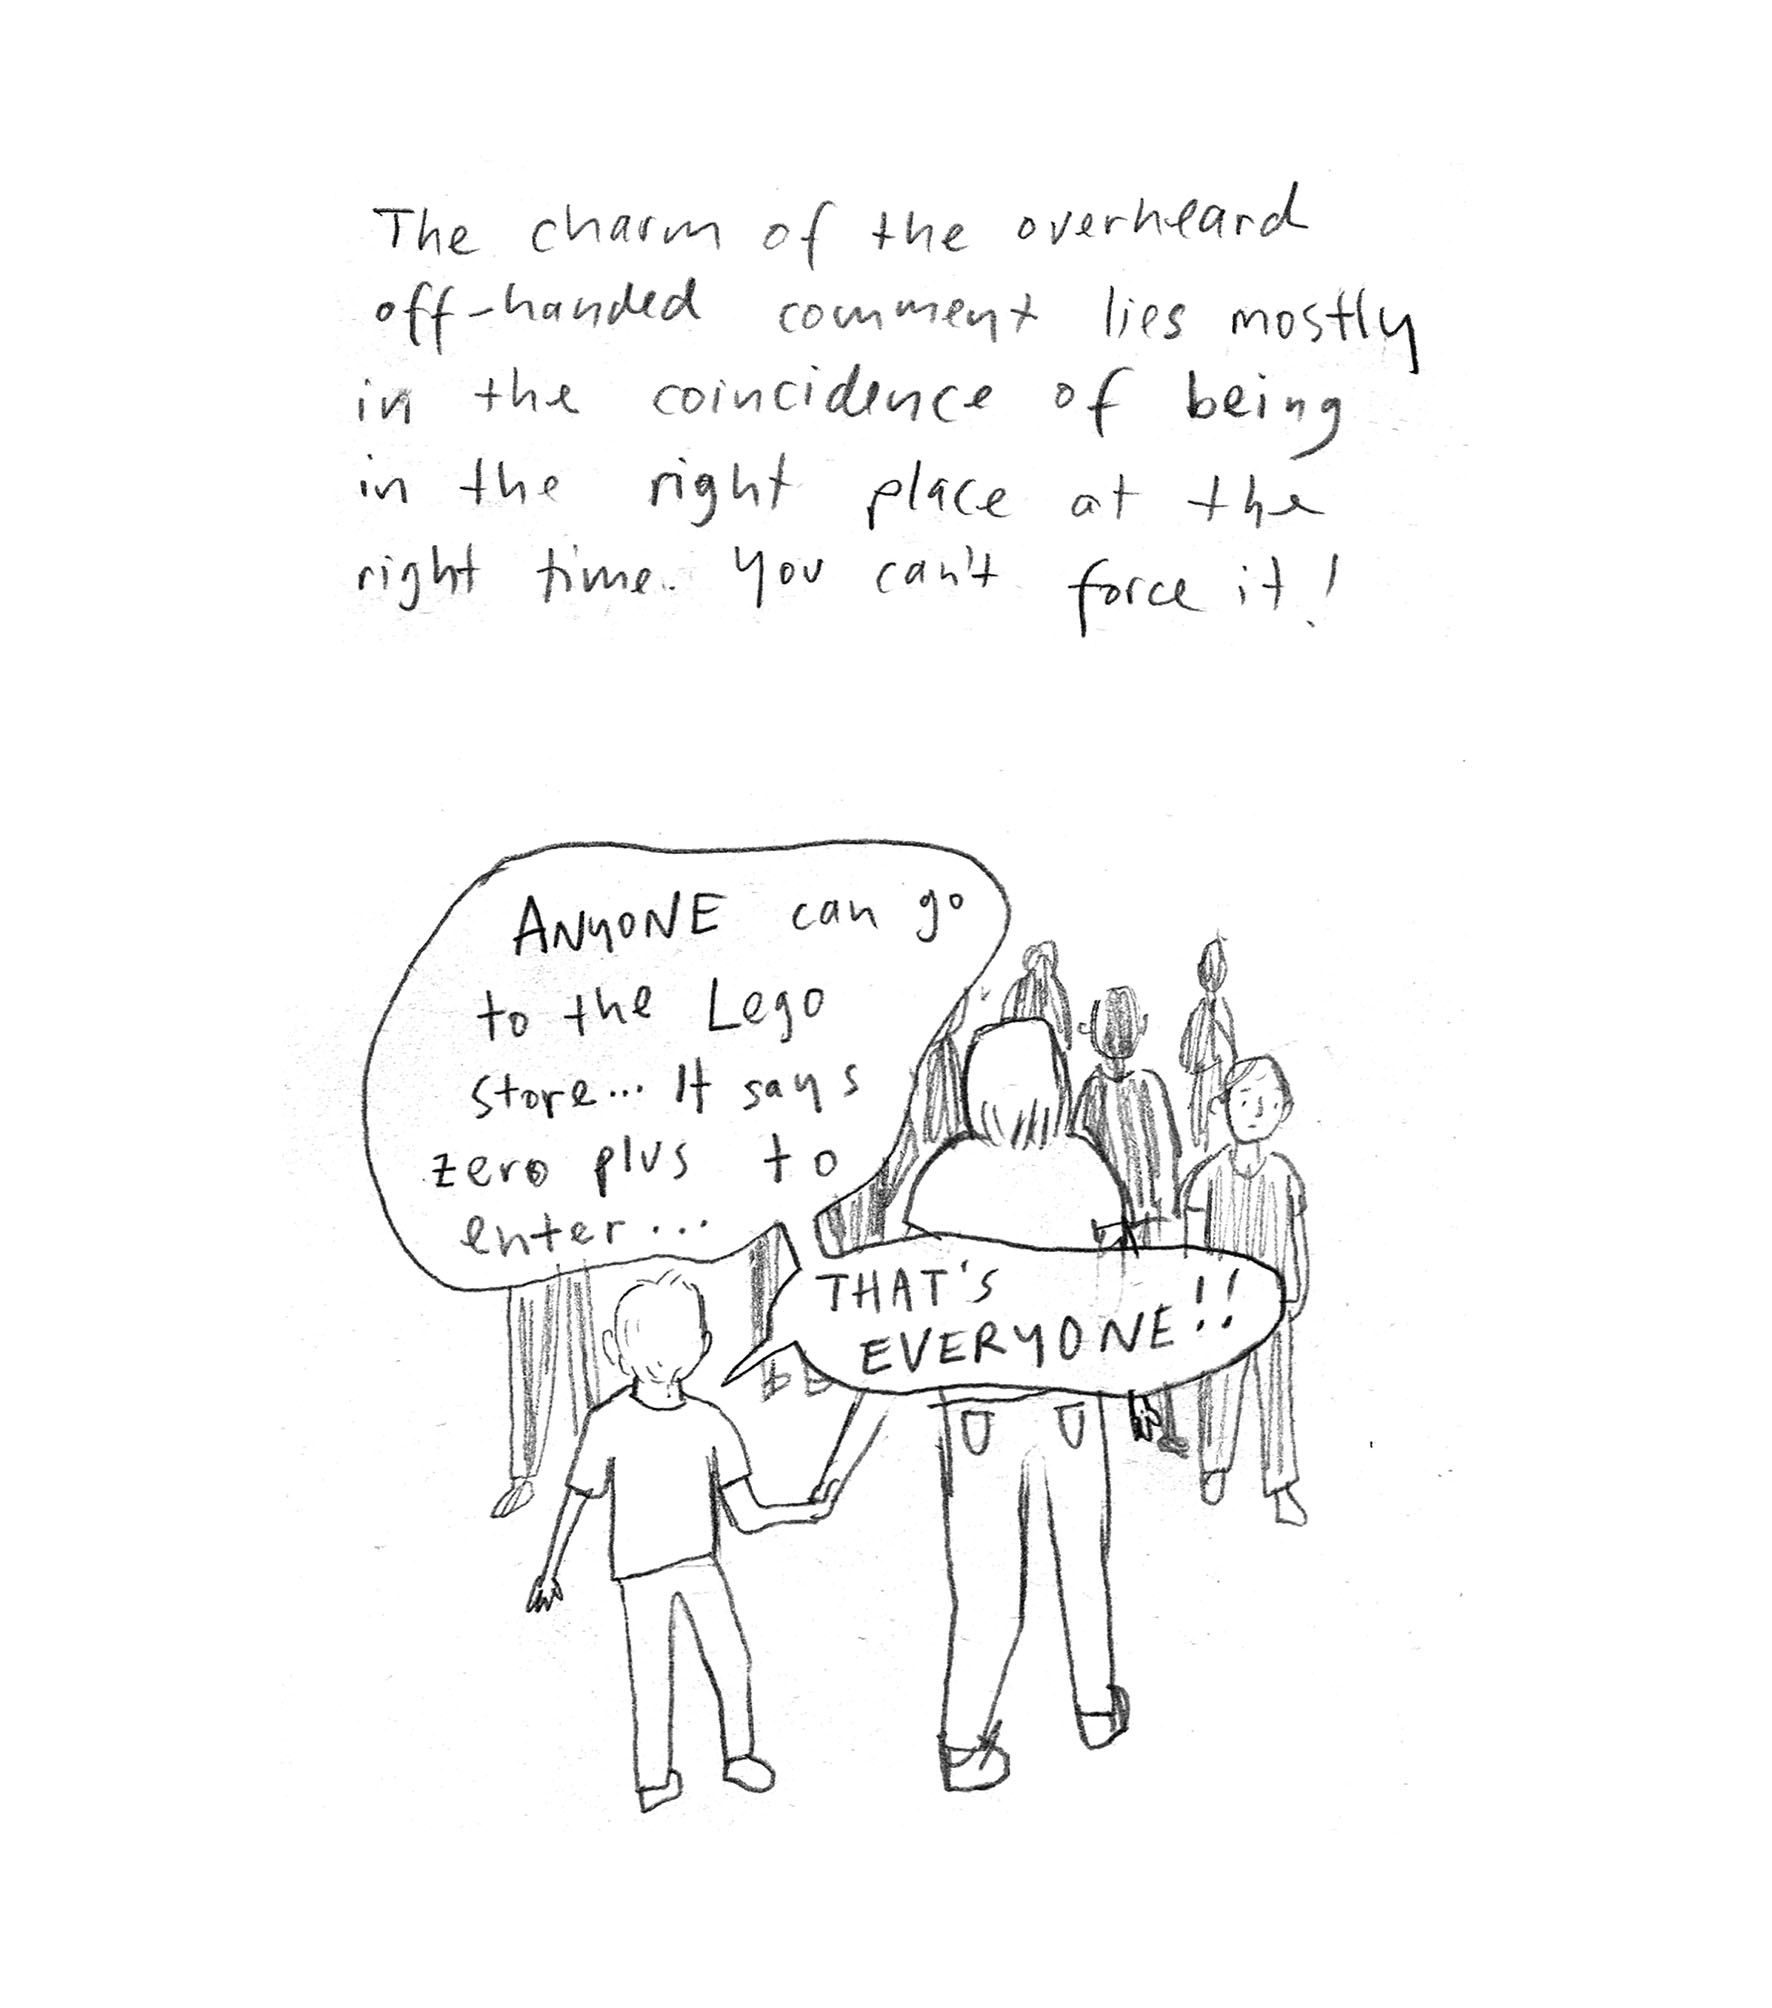 The charm of the overheard
off-handed comment lies mostly
in the coincidence of being
in the right place at the
right time. You can't force it!
ANYONE can go
to the Lego
store... It says
zero plus to
enter...
THAT'S
EVERYONE!!